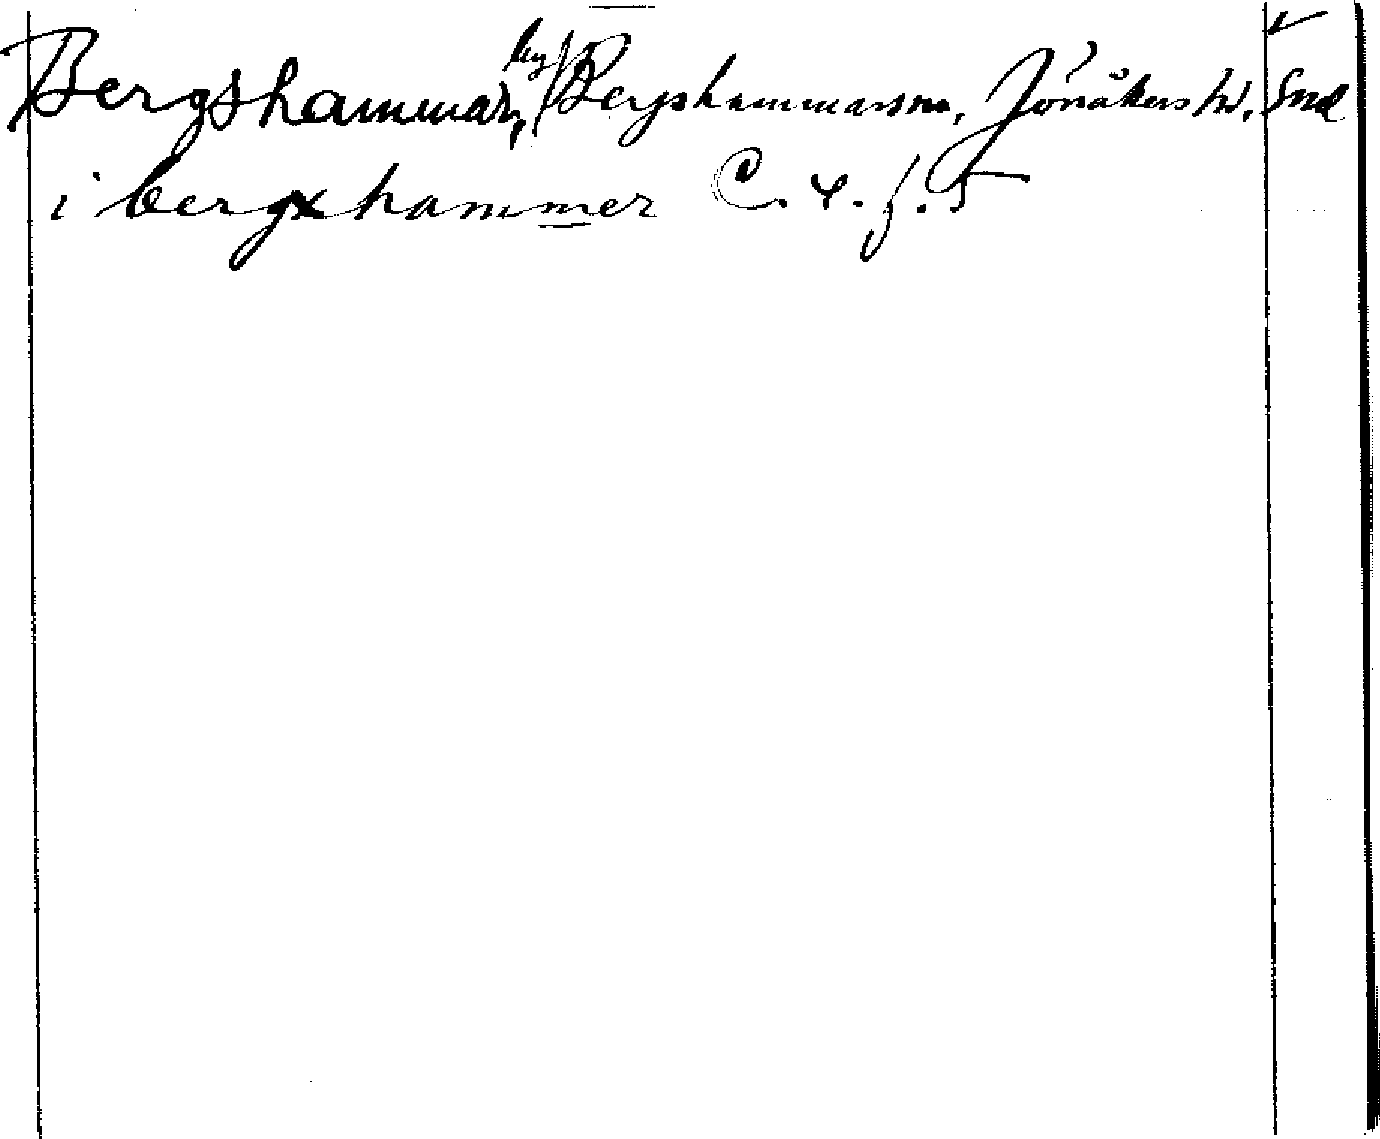 Bergshammar, by, Bergshammars sn, Jönåkers hd, Smd
i bergxhammer C. 4. f. 5